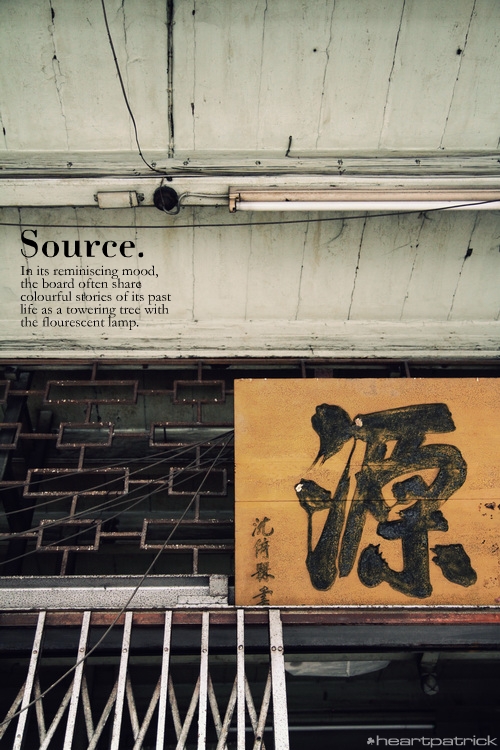 Source.
In its reminiscing mood,
the board often share
colourful stories of its past
life as a towering tree with
the flourescent lamp.
源
heartpatrick